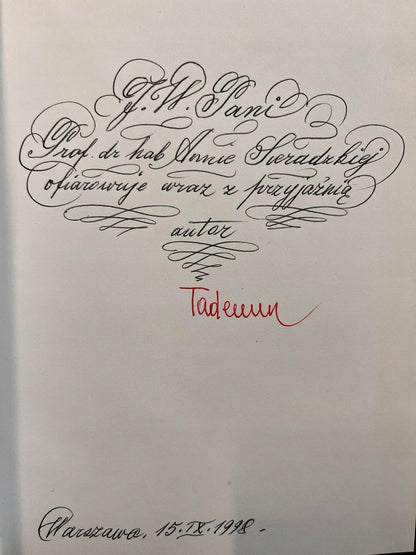 J. W. Pani
Prof. dr hab Annie Sieradzkiej
ofiarowuje wraz z przyjaźnią
autor
Warszawa, 15.IX.1998.